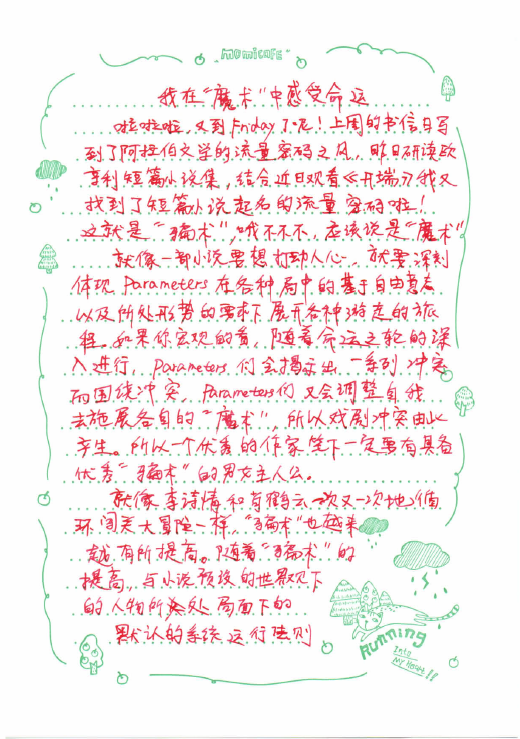 momicafe
我在“魔术”中感受命运
啦啦啦，又到Friday了呢！上周的书信日写
到了阿拉伯文学的流量密码之风，昨日研读欧
亨利短篇小说集，结合近日观看《开端》我又
找到了短篇小说起名的流量密码啦！
这就是“骗术”，哦不不不，应该说是“魔术”
就像一部小说要想打动人心，就要深刻
体现Parameters在各种局中的基于自由意志
以及所处形势的要求下展开各种游走的旅
程。如果你宏观的看，随着命运之轮的深
入进行，Parameters们会揭示出一系列冲突
而围绕冲突，Parameters们又会调整自我
去施展各自的“魔术”，所以戏剧冲突由此
产生。所以一个优秀的作家笔下一定要有具备
优秀“骗术”的男女主人公。
就像李诗情和肖鹤云一次又一次地循
环闯关大冒险一样，“骗术”也越来
越有所提高。随着“骗术”的
提高，与小说预设的世界观下
的人物所处局面下的
默认的系统运行法则
Running
Into
My Heart!!